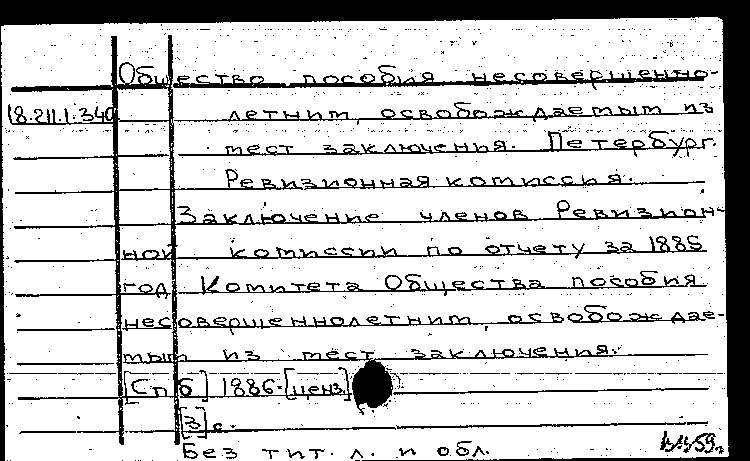 Общество пособия несовершенно-
18.211.1.340 летним, освобождаемым из
мест заключения. Петербург.
Ревизионная комиссия.
Заключение членов Ревизион-
ной комиссии по отчету за 1885
год Комитета Общества пособия
несовершеннолетним, освобождае-
мым из мест заключения.
[Спб] 1886. [ценз]
[3] с.
Без тит. л. и обл.